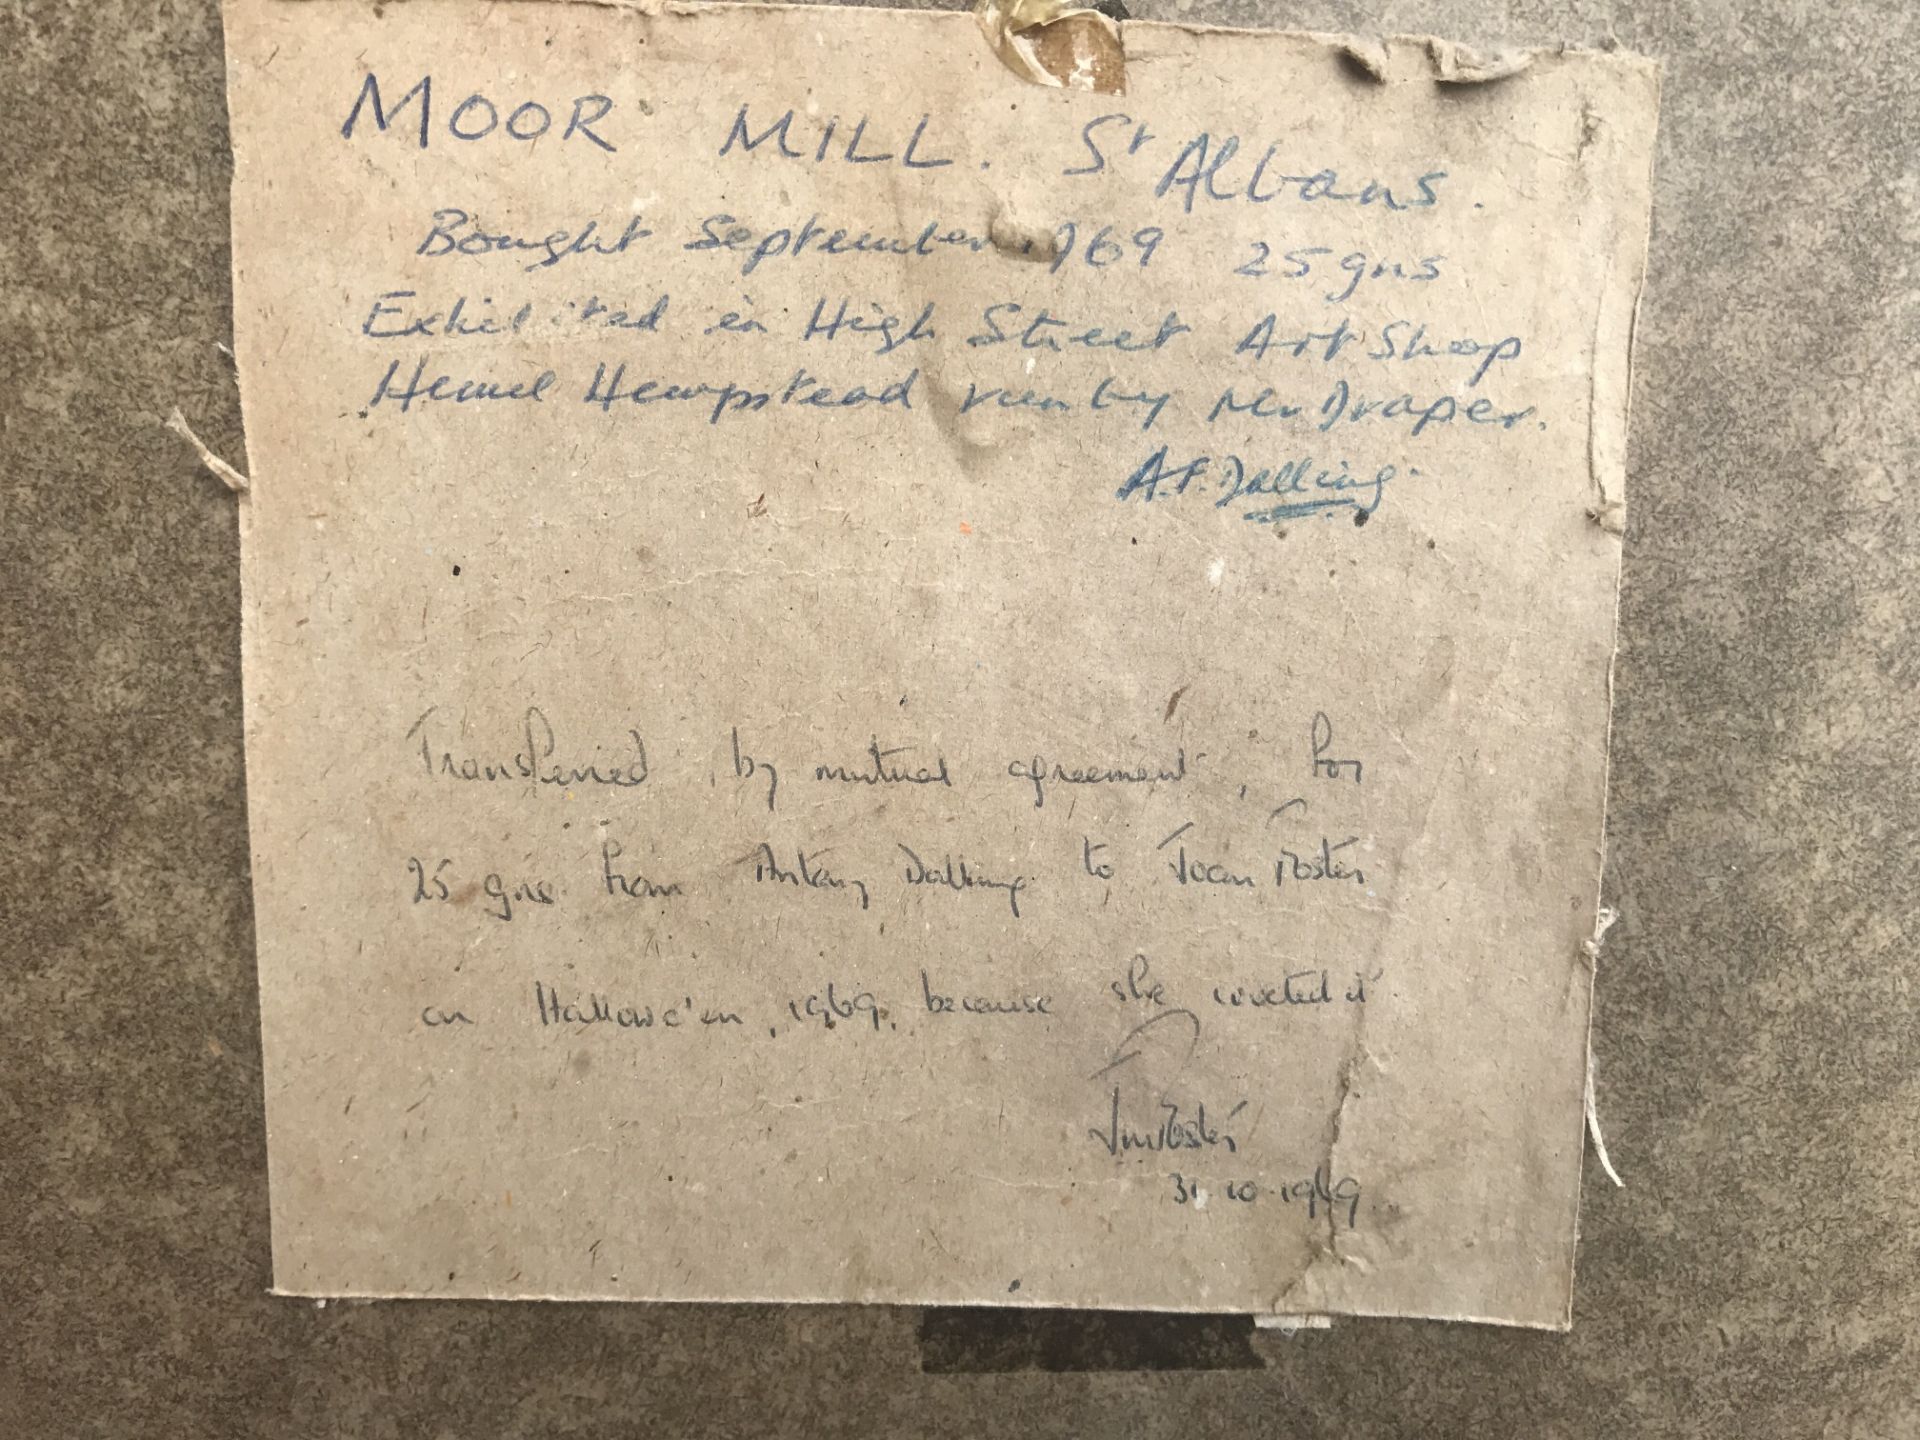 MOOR MILL. St Albans.
Bought September 1969 25 gns
Exhibited in High Street Art Shop
Hemel Hempstead run by Mr Draper.
A.P. Dalling
Transferred, by mutual agreement, for
25 gns from Antony Dalling to Joan Foster
on Hallowe'en, 1969, because she coveted it.
JmFoster
31.10.1969.